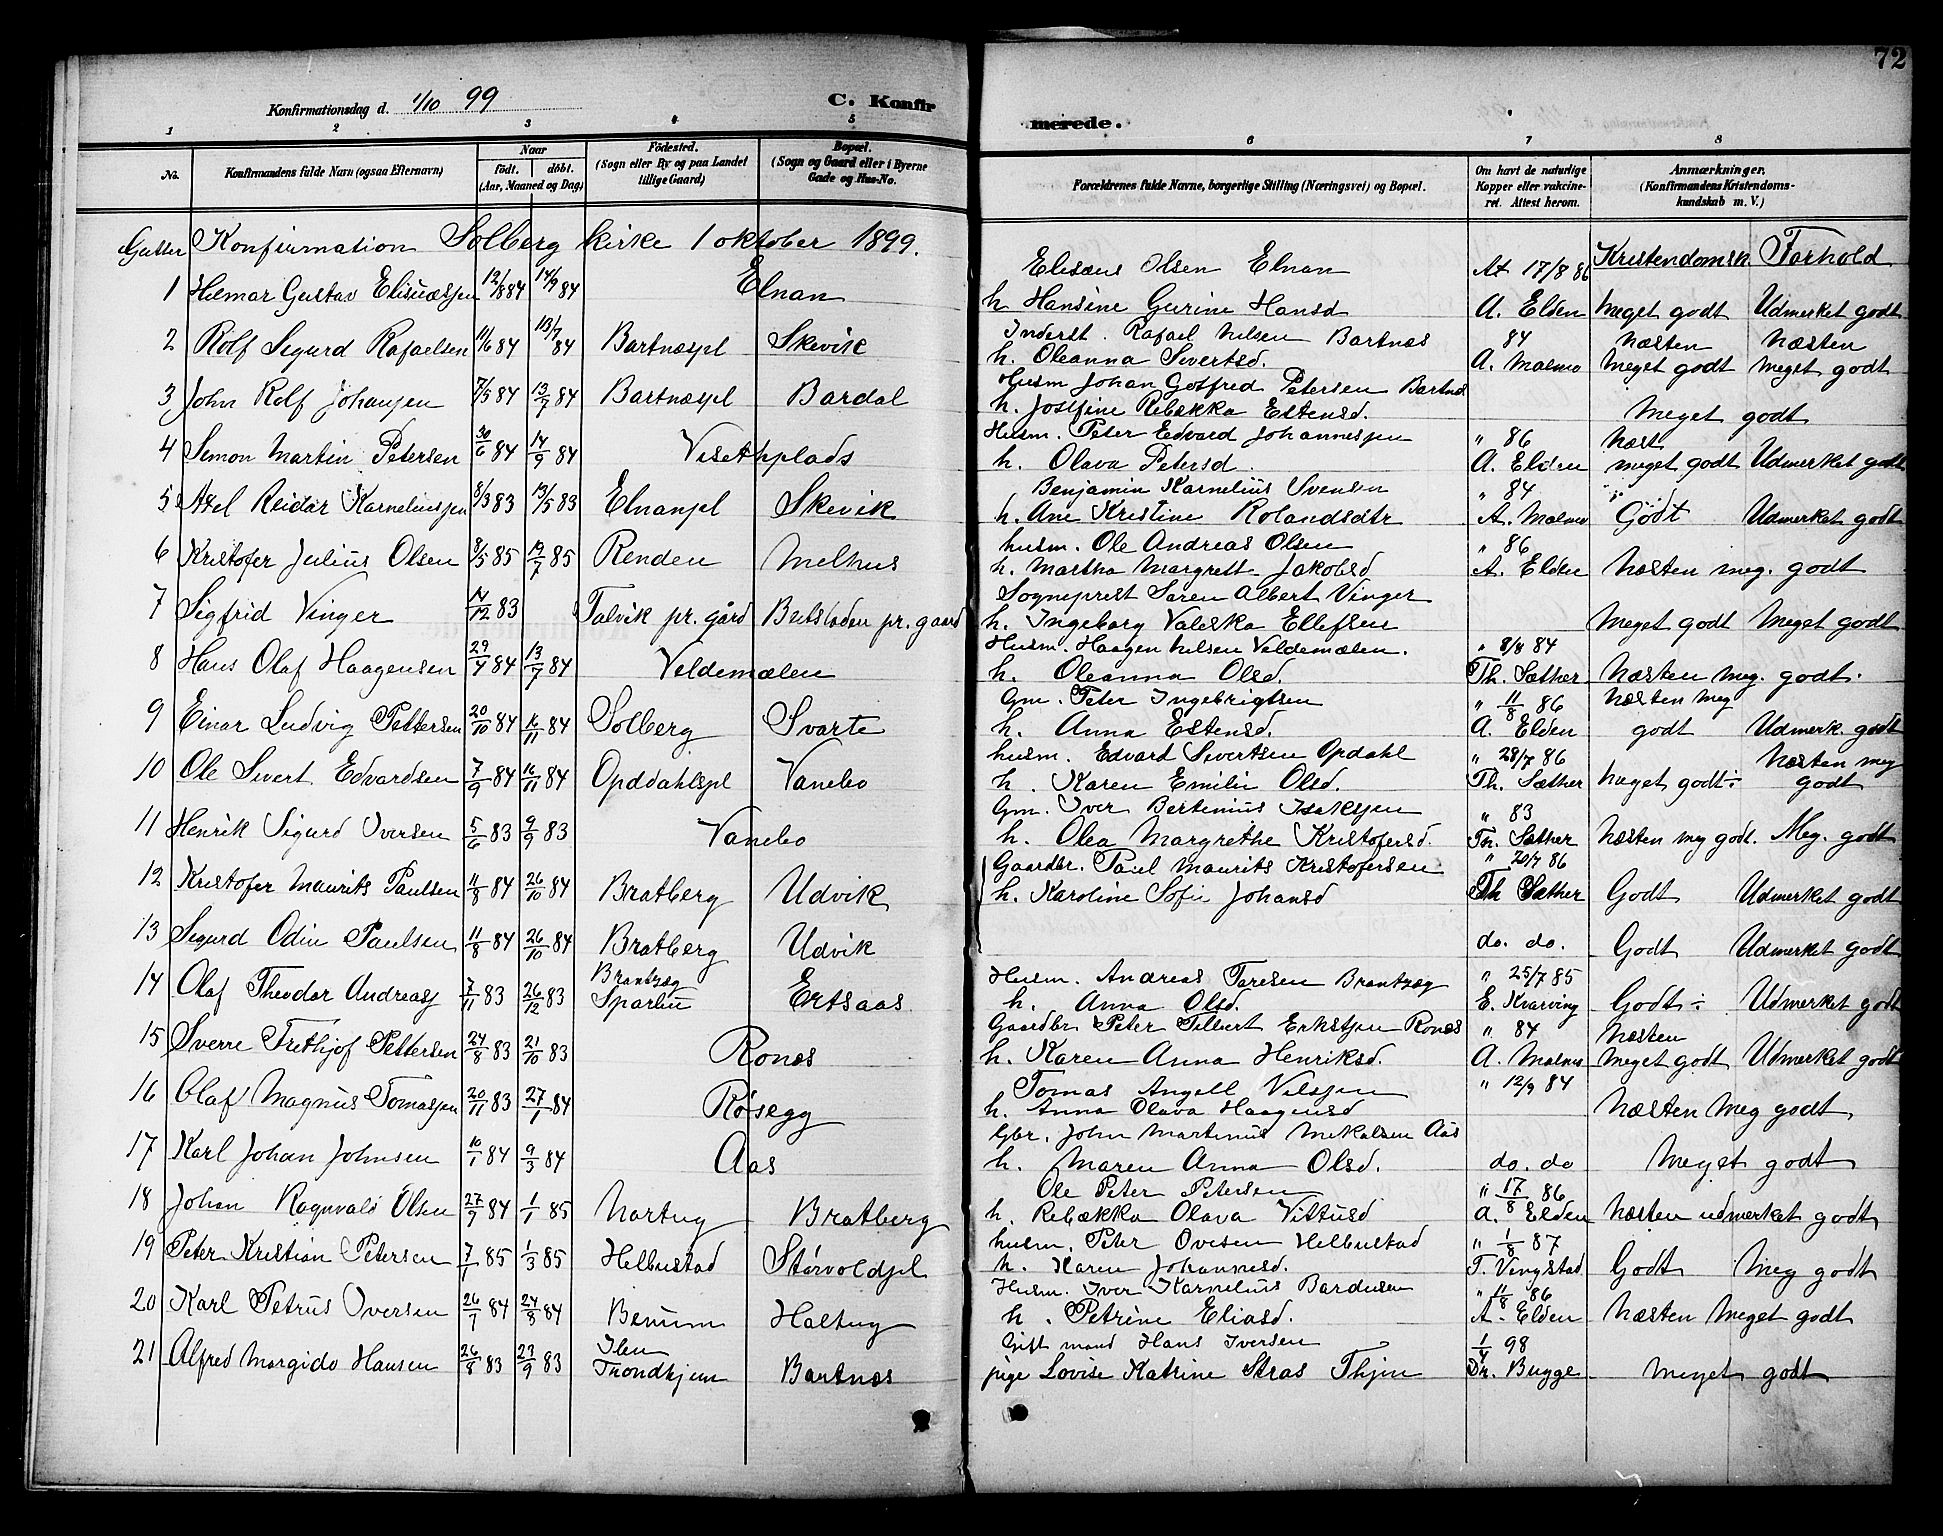 72
Konfirmationsdag d. 1/10 99
C. Konfir
merede.
1 2 3 4 5 6 7 8
No. Konfirmandens fulde Navn (ogsaa Efternavn) Naar födt. döbt. (Aar, Maaned og Dag) Födested. (Sogn eller By og paa Landet tillige Gaard) Bopæl. (Sogn og Gaard eller i Byerne Gade og Hus-No.
Forældrenes fulde Navne, borgerlige Stilling (Næringsvei) og Bopæl. Om havt de naturlige Kopper eller vakcineret. Attest herom. Anmærkninger. (Konfirmandens Kristendomskundskab m. V.)
Gutter Konfirmation Solberg kirke 1 oktober 1899.
Kristendomsk. Forhold
1 Hilmar Gustav Elisæussen 12/8 84 14/9 84 Elnan
Elisæus Olsen Elnan At 17/8 86
h. Hansine Gurine Hansd A. Elden Meget godt Udmerket godt
2 Rolf Sigurd Rafaelsen 11/6 84 13/7 84 Bartnæspl Skevik
Inderst. Rafael Nilsen Bartnæs 84 Næsten Næsten
h. Oleanna Sivertsd. A. Malmo meget godt meget godt
3 John Rolf Johansen 7/5 84 13/7 84 Bartnæspl Bardal
Husm Johan Gotfred Petersen Bartnæs
h. Josefine Rebækka Estensd. Meget godt
4 Simon Martin Petersen 30/6 84 14/9 84 Visethplads
Husm. Peter Edvard Johannessen " 86 Næst
h. Olava Petersd. A. Elden meget godt Udmerket godt
5 Axel Reidar Karneliussen 8/3 83 13/5 83 Elnanpl Skevik
Benjamin Karnelius Svensen " 84
h. Ane Kristine Rolandsdtr A. Malmo Godt Udmerket godt
6 Kristofer Julius Olsen 8/5 85 19/7 85 Renden Melhus
husm. Ole Andreas Olsen " 86
h. Martha Margrett Jakobsd A. Elden Næsten meg. godt
7 Sigfrid Vinger 14/12 83 Talvik pr. gård Beitstaden pr. gaard
Sogneprest Søren Albert Vinger
h. Ingeborg Valeska Ellefsen Meget godt Meget godt
8 Hans Olaf Haagensen 29/4 84 13/7 84 Veldemælen
Husm. Haagen Nilsen Veldemælen. " 8/8 84
h. Oleanna Olsd. Th. Sæther Næsten meg. godt.
9 Einar Ludvig Pettersen 20/10 84 16/11 84 Solberg Svarte
Gm. Peter Ingebrigtsen " 11/8 86 Næsten meg
h. Anna Estensd. A. Elden godt Udmerk. godt
10 Ole Sivert Edvardsen 7/9 84 16/11 84 Opddahlspl Vanebo
husm. Edvard Sivertsen Opdahl " 28/7 86 Næsten meg
h. Karen Emilie Olsd. Th. Sæther meget godt ÷ godt
11 Henrik Sigurd Iversen 5/6 83 9/9 83 Vanebo
Gm. Iver Bertinius Isaksen " 83
h. Olea Margrethe Kristofersd. Th. Sæther Næsten meg godt. Meg. godt
12 Kristofer Maurits Paulsen 11/8 84 26/10 84 Bratberg Udvik
Gaardbr. Paul Maurits Kristofersen " 20/7 86
h. Karoline Sofie Johansd Th Sæther Godt Udmerket godt
13 Sigurd Odin Paulsen 11/8 84 26/10 84 Bratberg Udvik
do. do. Godt Udmerket godt
14 Olaf Theodor Andreass 7/11 83 26/12 83 Brantzæg Sparbu Ertsaas
Husm. Andreas Toresen Brantzæg " 25/7 85
h. Anna Olsd. E. Kvarving Godt ÷ Udmerket godt
15 Sverre Frithjof Pettersen 24/8 83 21/10 83 Ronæs
Gaardbr. Peter Tilbert Eriksen Ronæs " 84 Næsten
h. Karen Anna Henriksd. A. Malmo meget godt Udmerket godt
16 Olaf Magnus Tomassen 20/11 83 27/1 84 Røsegg
Tomas Angell Nilssen " 12/9 84
h. Anna Olava Haagensd Næsten meg godt
17 Karl Johan Johnsen 10/1 84 9/3 84 Aas
Gbr. John Martinus Mikalsen Aas
h. Maren Anna Olsd. do. do Meget godt
18 Johan Ragnvald Olsen 27/9 84 1/1 85 Nortug Bratberg
Ole Peter Petersen " 17/8 86
h. Rebækka Olava Vittusd A. Elden Næsten udmerket godt
19 Peter Kristian Petersen 7/1 85 1/3 85 Helbustad Størvoldpl
husm. Peter Ovesen Helbustad " 1/8 87
h. Karen Johannesd. T. Vingstad Godt Meg godt
20 Karl Petrus Iversen 26/7 84 24/8 84 Benum Haltug
Husm. Iver Karnelius Bardusen " 11/8 86
h. Petrine Eliasd. A. Elden Næsten Meget godt
21 Alfred Margido Hansen 26/8 83 23/9 83 Ilen Trondhjem Bartnæs
Gift mand Hans Iversen 1/4 98
pige Lovise Katrine Stras Thjm Dr. Bugge Meget godt